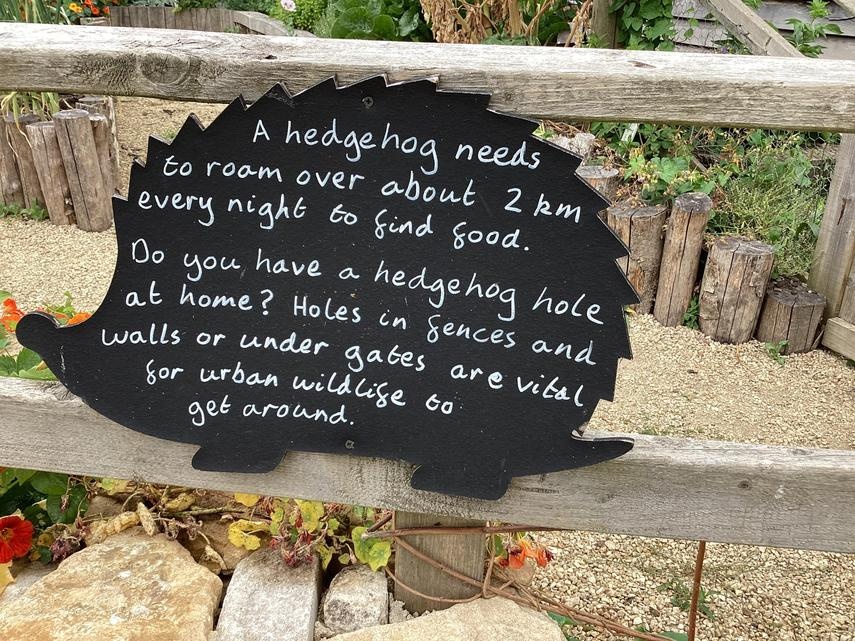 A hedgehog needs
to roam over about 2 km
every night to find food.
Do you have a hedgehog hole
at home? Holes in fences and
walls or under gates are vital
for urban wildlife to
get around.